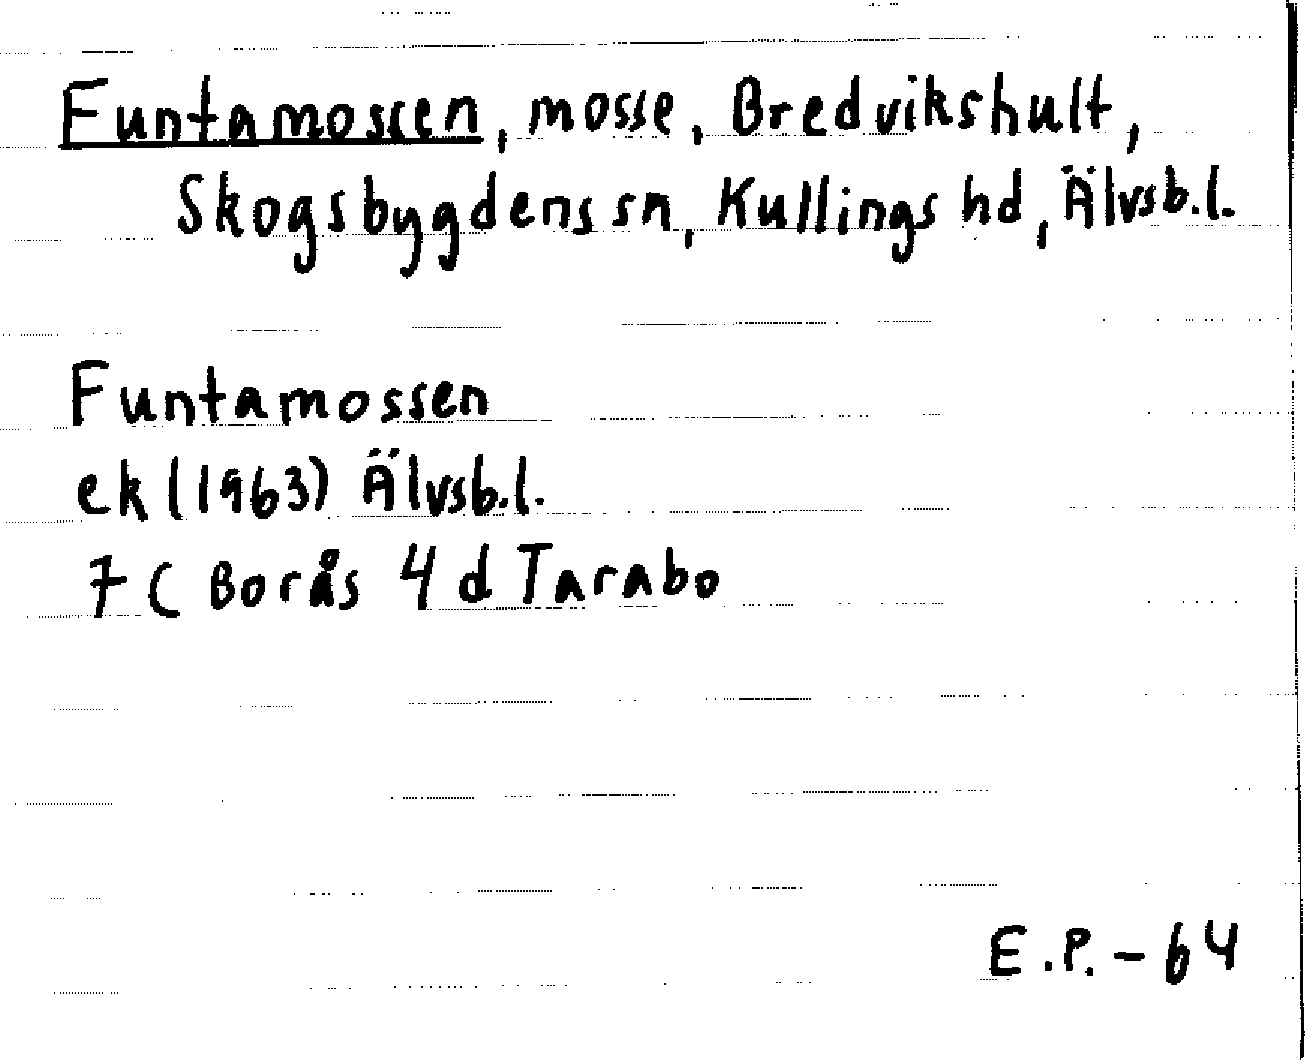 Funtamossen, mosse, Bredvikshult,
Skogsbygdens sn, Kullings hd, Älvsb.l.
Funtamossen
ek (1963) Älvsb.l.
7C Borås 4d Tarabo
E.P. - 64